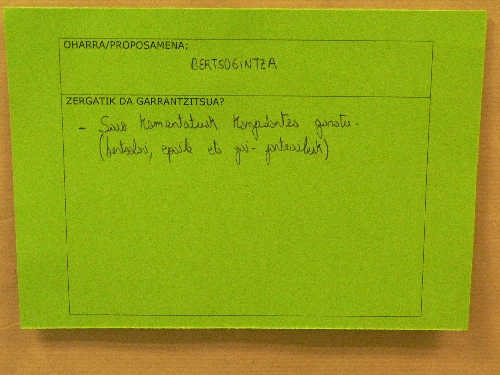 OHARRA/PROPOSAMENA:
BERTSOGINTZA
ZERGATIK DA GARRANTZITSUA?
- Saio komentatuak garatu.
(bertsolari, epaile eta gai-jartzaileak)